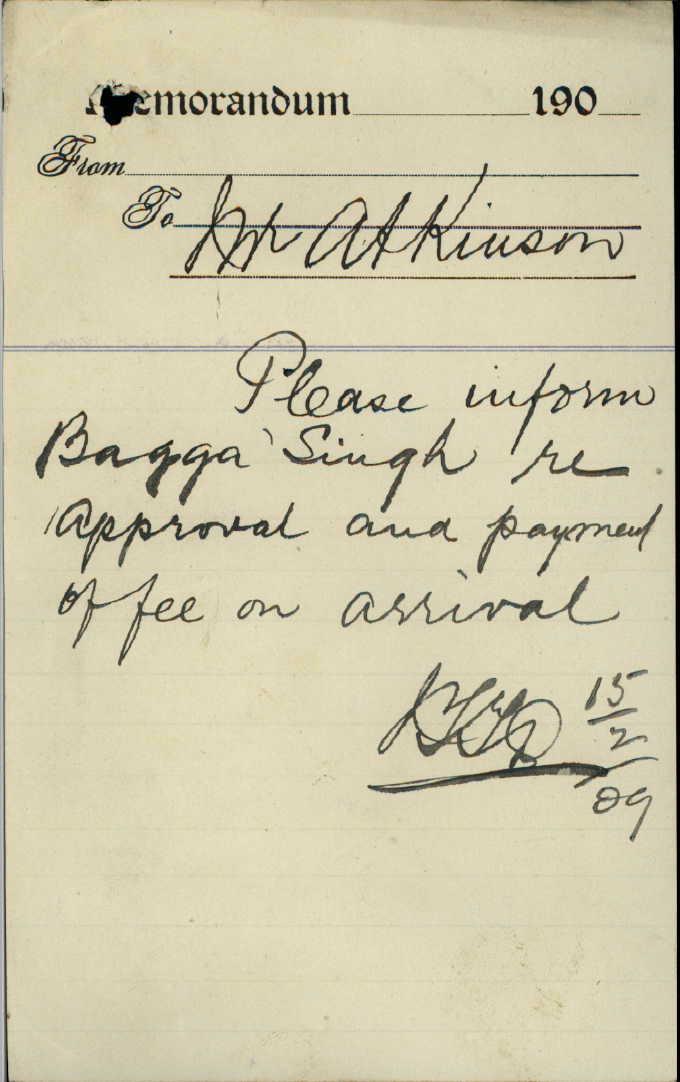 Memorandum 190
From
To Mr Atkinson
Please inform
Bagga Singh re
Approval and payment
of fee on arrival
15/2/09